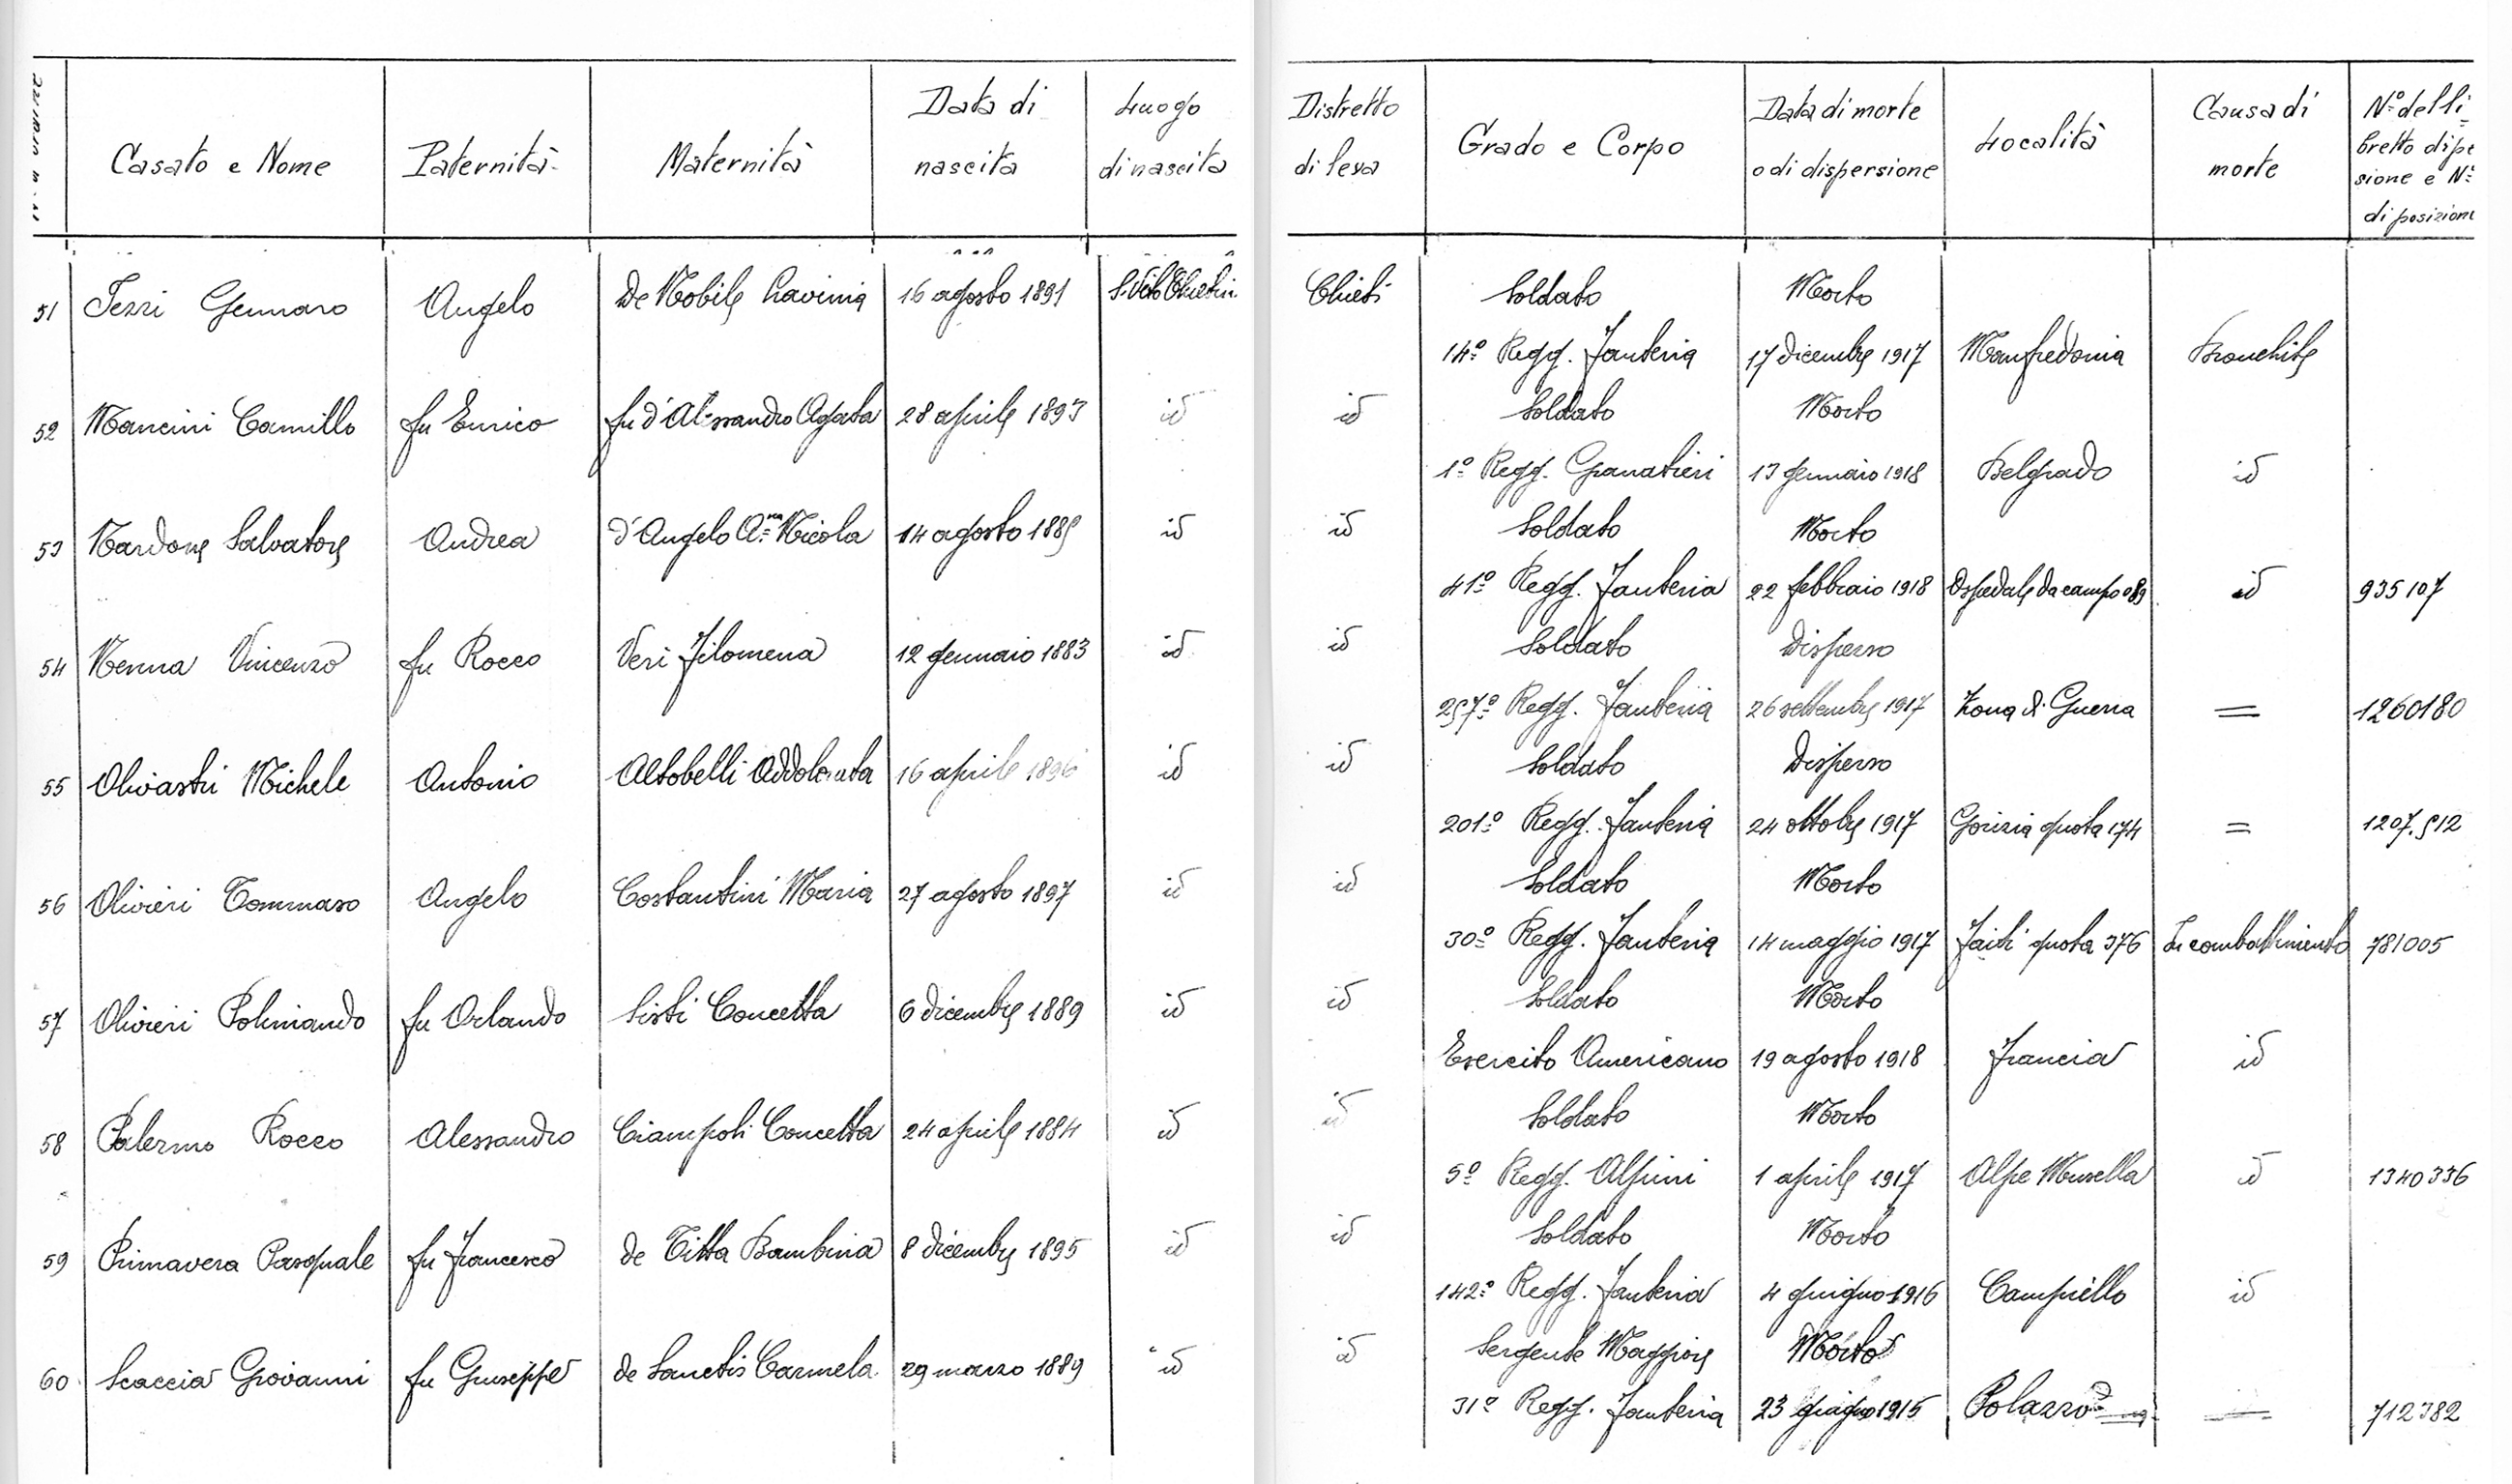 Casato e Nome Paternità Maternità Data di nascita Luogo di nascita Distretto di leva Grado e Corpo Data di morte o di dispersione Località Causa di morte N° del li= bretto di pe sione e N° di posizione
51 Tezzi Gennaro Angelo De Nobile Lavinia 16 agosto 1891 S. Vito Chietin. Chieti Soldato Morto
14° Regg. Fanteria 17 dicembre 1917 Manfredonia Bronchite
52 Mancini Camillo fu Enrico fu d'Alessandro Agata 28 aprile 1893 id id Soldato Morto
1° Regg. Granatieri 13 gennaio 1918 Belgrado id
53 Nardone Salvatore Andrea d'Angelo A.na Nicola 14 agosto 1885 id id Soldato Morto
41° Regg. Fanteria 22 febbraio 1918 Ospedale da campo 089 id 935107
54 Menna Vincenzo fu Rocco Veri Filomena 12 gennaio 1883 id id Soldato Disperso
257° Regg. Fanteria 26 settembre 1917 Zona di Guerra = 1260180
55 Olivastri Michele Antonio Altobelli Addolorata 16 aprile 1896 id id Soldato Disperso
201° Regg. Fanteria 24 ottobre 1917 Gorizia quota 174 = 1207.512
56 Olivieri Tommaso Angelo Costantini Maria 27 agosto 1897 id id Soldato Morto
30° Regg. Fanteria 14 maggio 1917 Faiti quota 376 In combattimento 781005
57 Olivieri Poliniando fu Orlando Sisti Concetta 6 dicembre 1889 id id Soldato Morto
Esercito Americano 19 agosto 1918 Francia id
58 Palermo Rocco Alessandro Ciampoli Concetta 24 aprile 1884 id id Soldato Morto
5° Regg. Alpini 1 aprile 1917 Alpe Musella id 1340336
59 Primavera Pasquale fu Francesco de Titta Bambina 8 dicembre 1895 id id Soldato Morto
142° Regg. Fanteria 4 giugno 1916 Campiello id
60 Scaccia Giovanni fu Giuseppe de Sanctis Carmela 29 marzo 1889 id id Sergente Maggiore Morto
31° Regg. Fanteria 23 giugno 1915 Polazzo = 712382